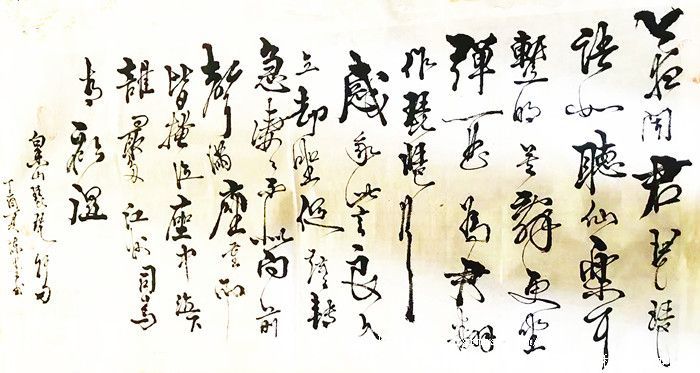 今夜聞君琵琶
語如聽仙樂耳
暫明莫辭更坐
彈一曲為君翻
作琵琶行
感我此言良久
立却坐促弦轉
急凄凄不似向前
聲滿座重聞
皆掩泣座中泣下
誰最多江州司馬
青衫濕
白香山琵琶行句
丁酉